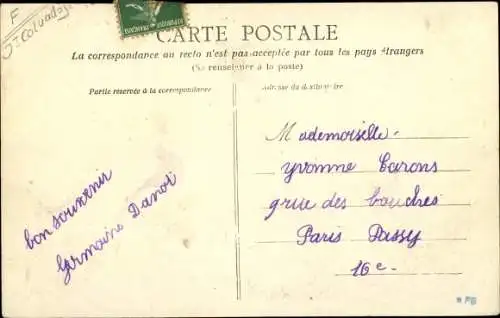 F
J= Calvados
CARTE POSTALE
La correspondance au recto n'est pas acceptée par tous les pays étrangers
(Se renseigner à la poste)
Partie réservée à la correspondance
Adresse du destinataire
Mademoiselle.
Yvonne Carons
grue des bauches
Paris Passy
16e.
bon souvenir
Germaine Danoi